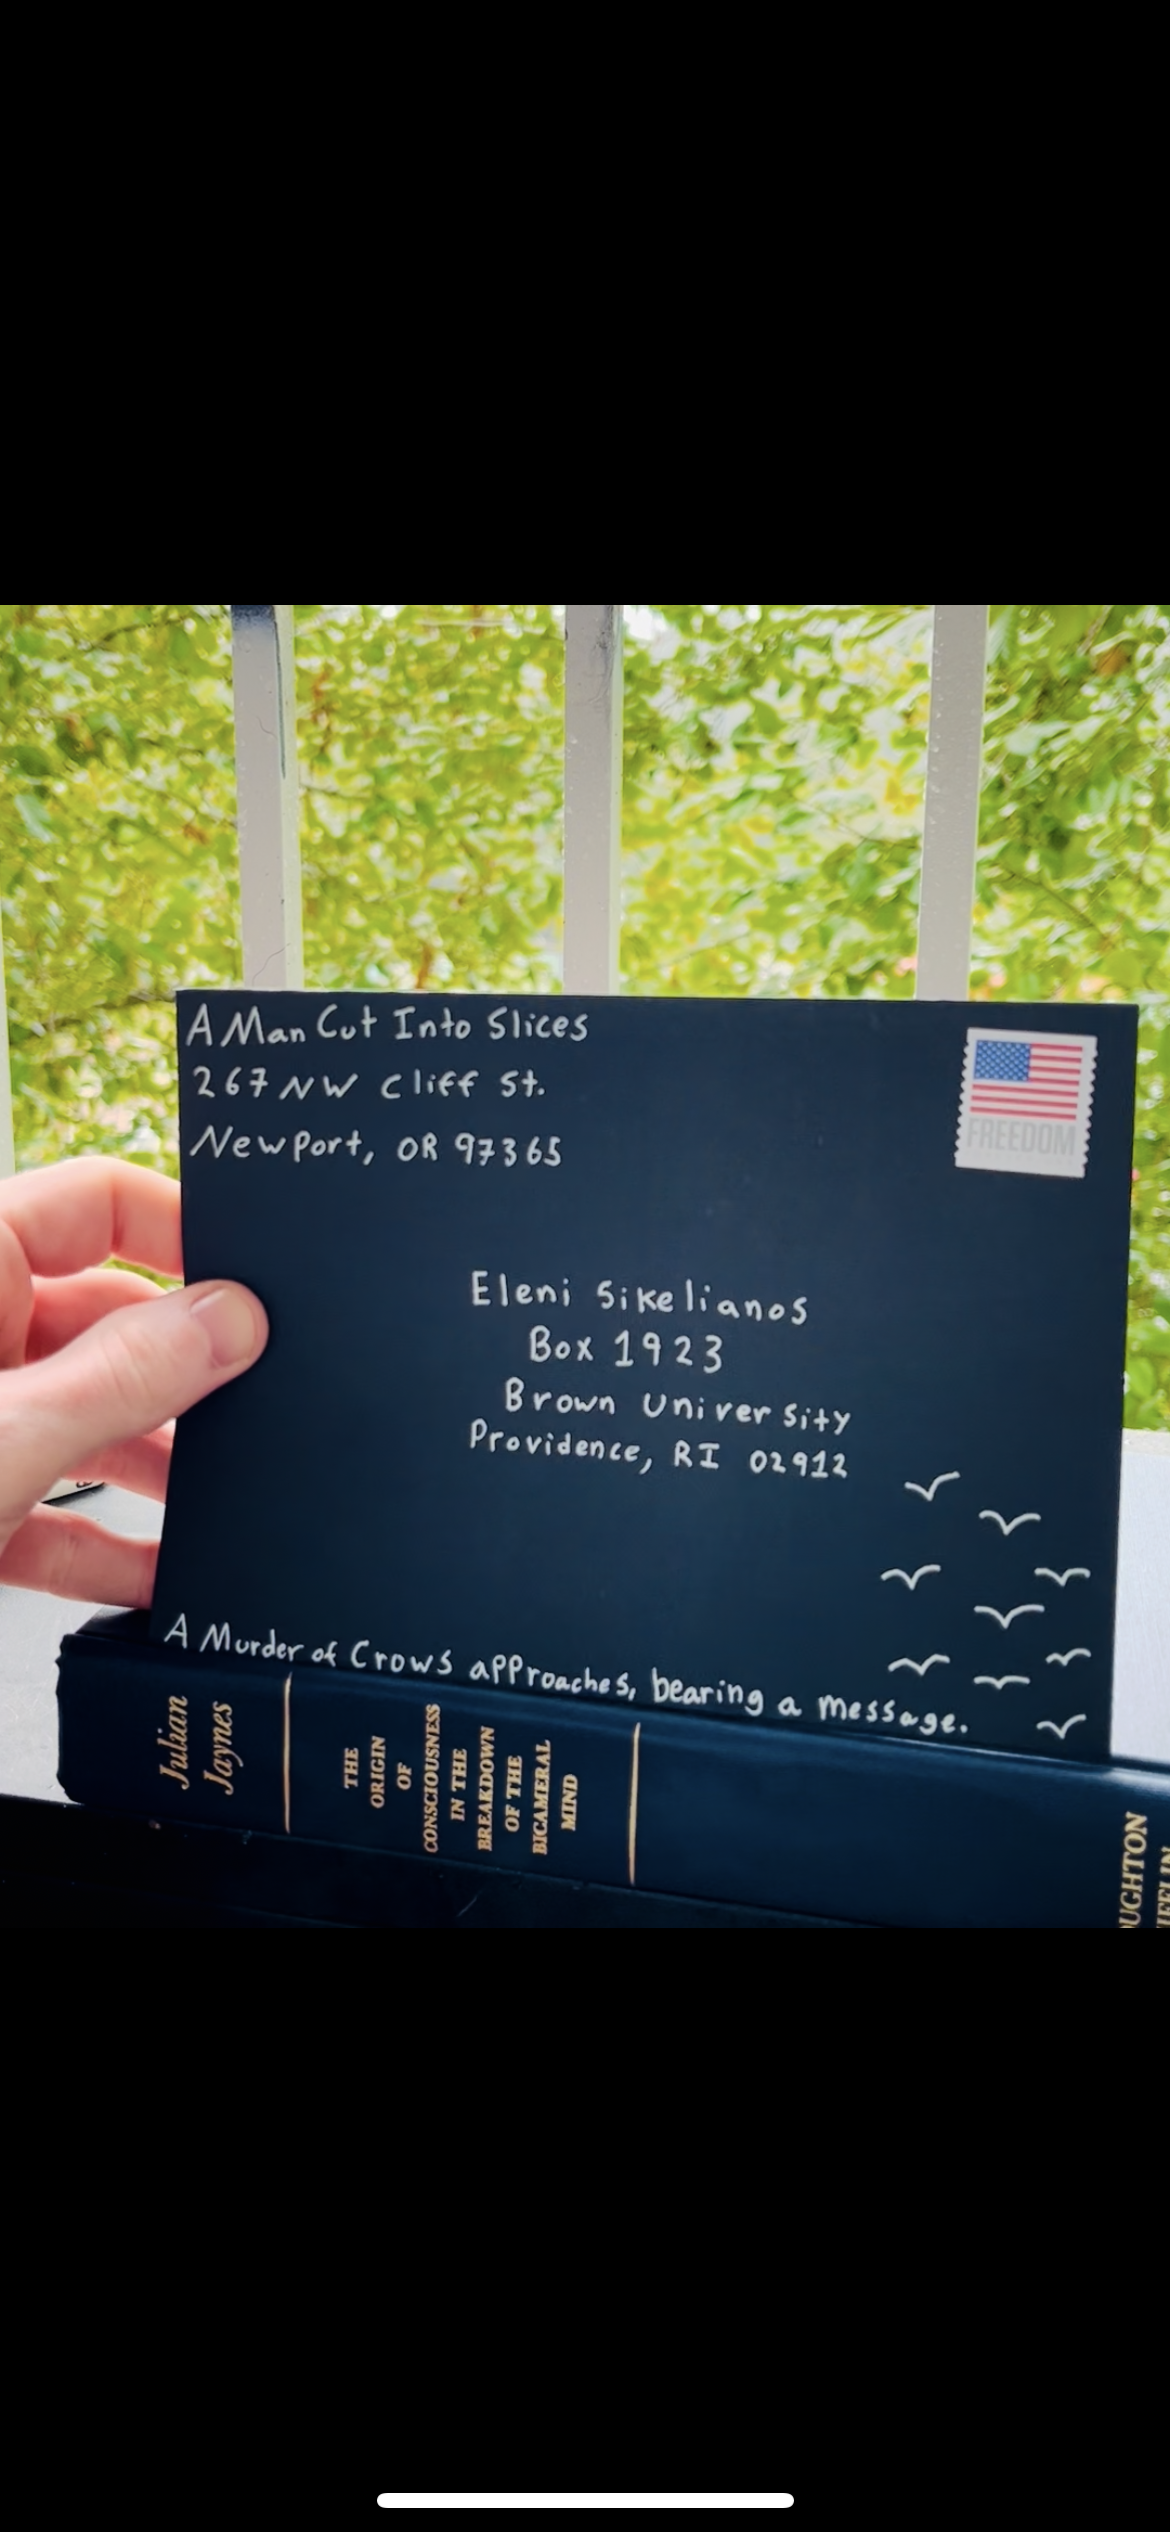 A Man Cut Into Slices
267 NW Cliff St.
Newport, OR 97365
FREEDOM
Eleni Sikelianos
Box 1923
Brown University
Providence, RI 02912
A Murder of Crows approaches, bearing a message.
Julian
Jaynes
THE
ORIGIN
OF
CONSCIOUSNESS
IN THE
BREAKDOWN
OF THE
BICAMERAL
MIND